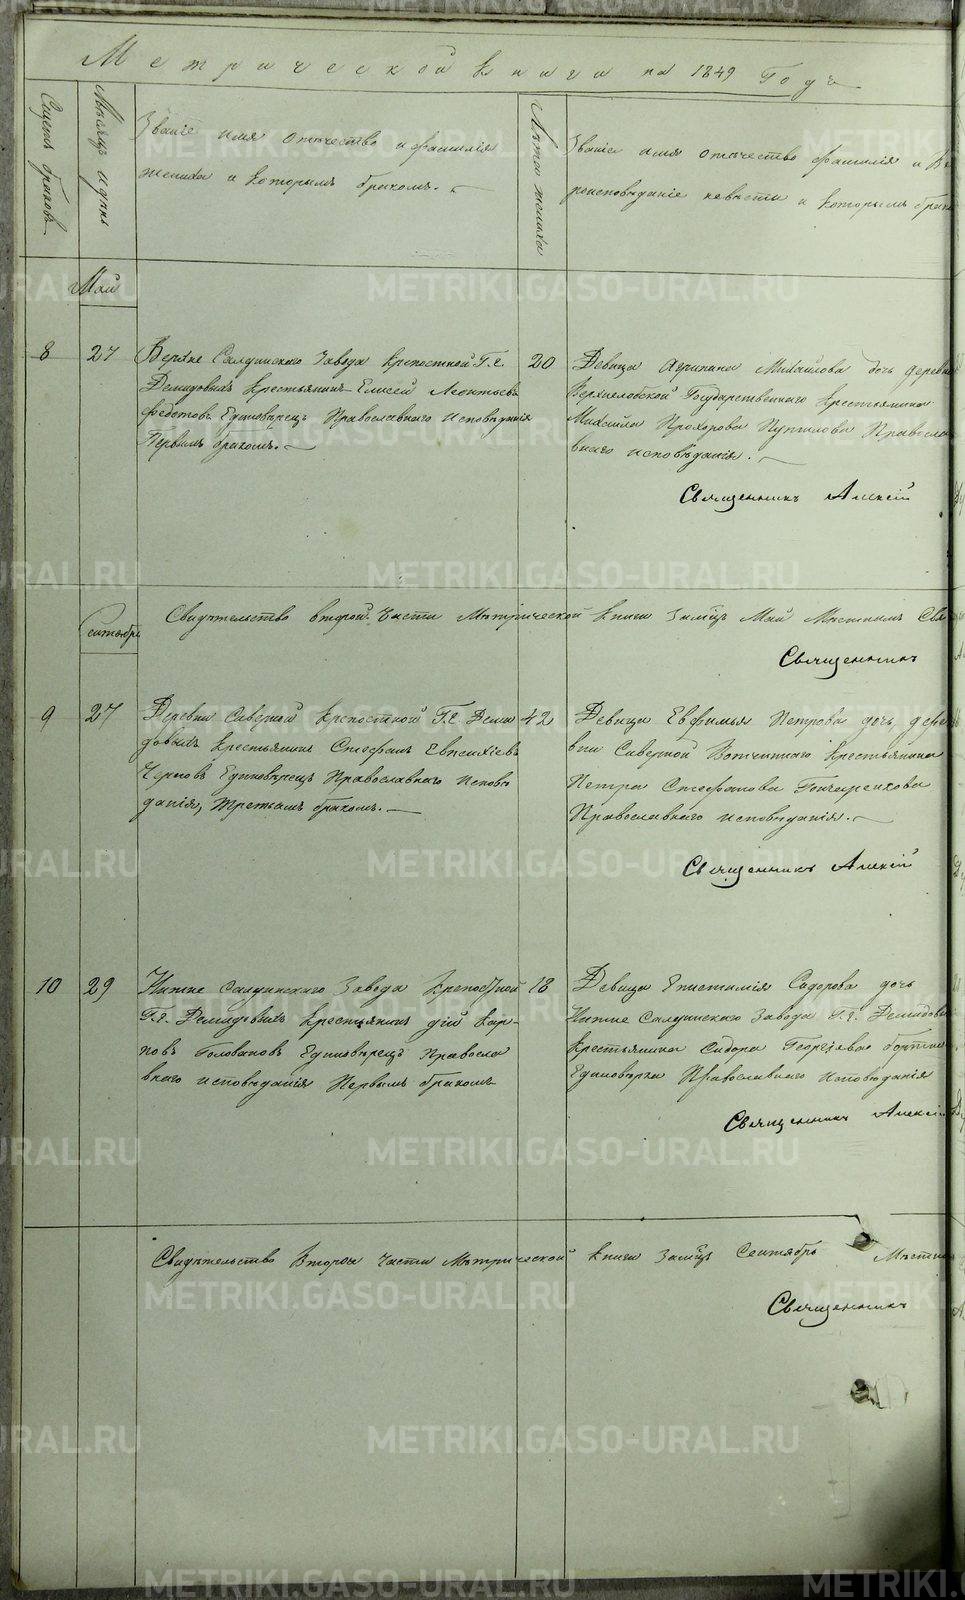 Метрической книги на 1849 Годъ
Счетъ браковъ
Мѣсяцъ и день
Званіе имя отчество и фамилія
жениха и которымъ бракомъ.
Лѣта жениха
Званіе имя отчество фамилія и Вѣ
роисповѣданіе невѣсты и которымъ брак
Май
8
27
Верхне Салдинскаго Завода крепостной Г.г.
Демидовыхъ крестьянинъ Елисей Леонтьевъ
Федотовъ Единовѣрецъ Православнаго исповѣданія
Первымъ бракомъ.
20
Девица Агрипина Михайлова дочь деревни
Государственнаго крестьянина
Михайла Прохорова Православ
внаго исповѣданія.
Священникъ Алексій
Свидѣтельство второй Части Метрической книги за мѣсяцъ Май
Священникъ
Сентябрь
9
27
Деревни Северной крепостной Г.г. Деми
довыхъ крестьянинъ Стефанъ
Единовѣрецъ Православнаго исповѣ
данія, третьимъ бракомъ.
42
Девица Евфимья Петрова дочь дере
вни Северной крестьянина
Петра Стефанова Гончаренкова
Православнаго исповѣданія.
Священникъ Алексій
10
29
Нижне Салдинскаго Завода крепостной
Г.г. Демидовыхъ крестьянинъ Кар-
повъ Головановъ Единовѣрецъ Правосла
внаго исповѣданія Первымъ бракомъ
18
Девица Епистимія Сидорова дочь
Нижне Салдинскаго Завода Г.г. Демидовы
крестьянина Сидора Георгіева
Единовѣрка Православнаго исповѣданія
Священникъ Алексій
Свидѣтельство второй части Метрической книги за мѣсяцъ Сентябрь
Священникъ
METRIKI.GASO-URAL.RU